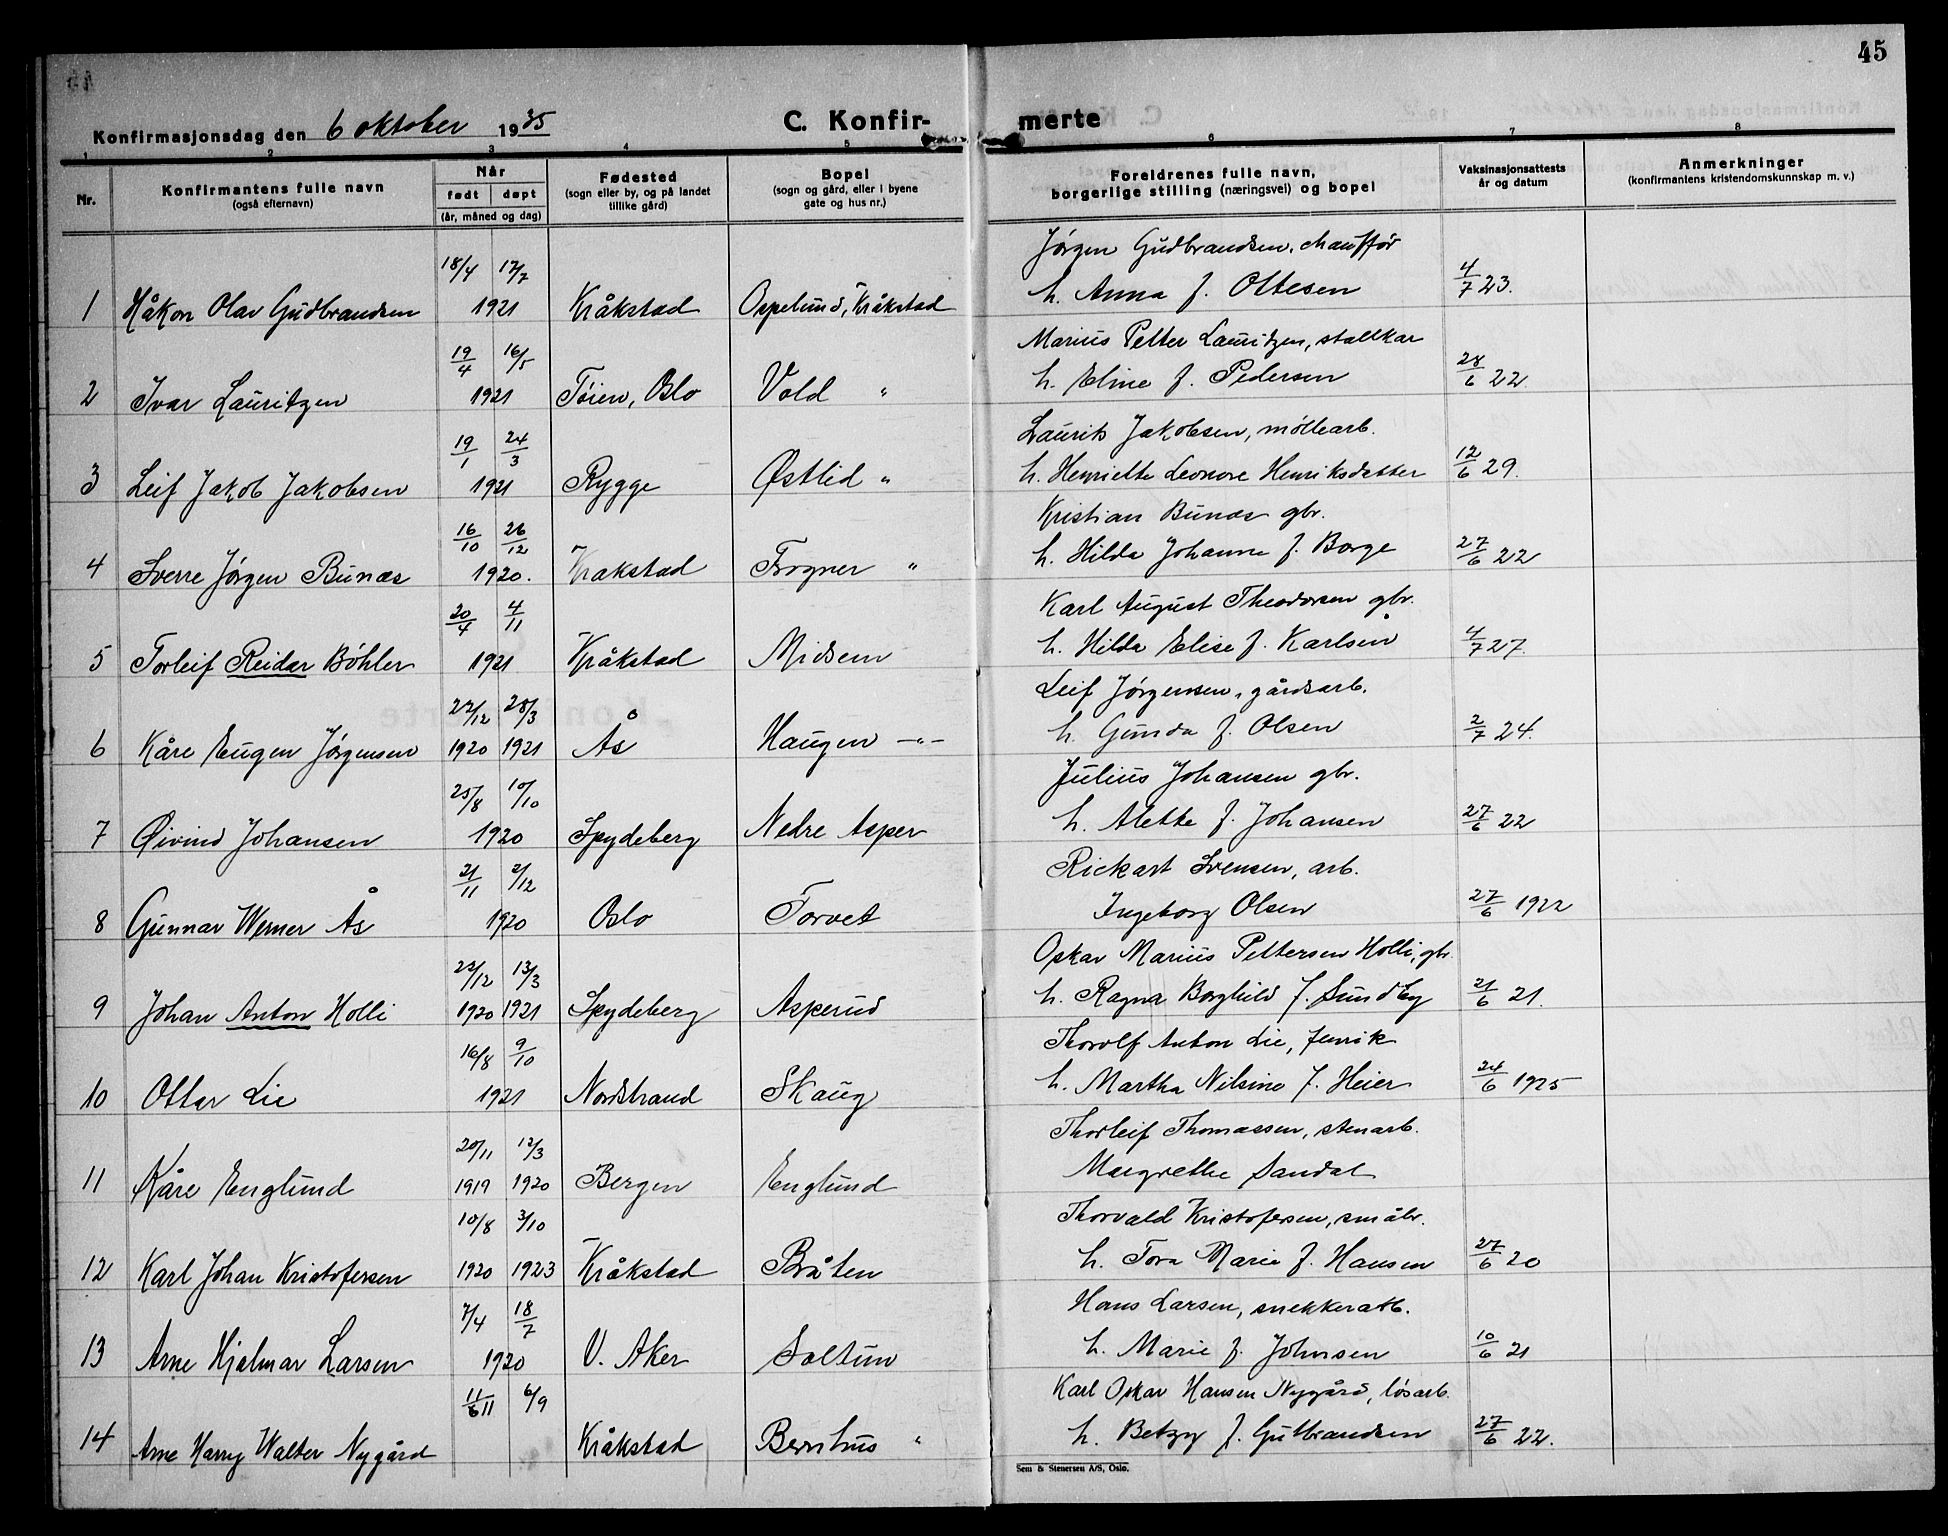 45
Konfirmasjonsdag den 6 oktober 1935
C. Konfirmerte
1 2 3 4 5 6 7 8
Nr.
Konfirmantens fulle navn
(også efternavn)
Når
født døpt
(år, måned og dag)
Fødested
(sogn eller by, og på landet
tillike gård)
Bopel
(sogn og gård, eller i byene
gate og hus nr.)
Foreldrenes fulle navn,
borgerlige stilling (næringsvei) og bopel
Vaksinasjonsattests
år og datum
Anmerkninger
(konfirmantens kristendomskunnskap m. v.)
18/4 17/7 Jørgen Gudbrandsen, chauffør
1 Håkon Olav Gudbrandsen 1921 Kråkstad Ospelund, Kråkstad h. Anna f. Ottesen 4/7 23.
19/4 16/5 Marius Petter Lauritzen, stallkar
2 Ivar Lauritzen 1921 Tøien, Oslo Vold " h. Eline f. Pedersen 28/6 22.
19/1 24/3 Laurits Jakobsen, møllearb.
3 Leif Jakob Jakobsen 1921 Rygge Østlid " h. Henriette Leonore Henriksdatter 12/6 29.
16/10 26/12 Kristian Bunæs gbr.
4 Sverre Jørgen Bunæs 1920. Krakstad Frogner " h. Hilda Johanne f. Borge 27/6 22
20/4 4/11 Karl August Theodorsen gbr.
5 Torleif Reidar Bøhler 1921 Kråkstad Midsem h. Hilda Elise f. Karlsen 4/7 27.
22/12 28/3 Leif Jørgensen, gårdsarb.
6 Kåre Eugen Jørgensen 1920 1921 Ås Haugen -"- h. Gunda f. Olsen 2/7 24.
25/8 10/10 Julius Johansen gbr.
7 Øivind Johansen 1920 Spydeberg Nedre Asper h. Alette f. Johansen 27/6 22
21/11 2/12 Rickart Svensen, arb.
8 Gunnar Werner Ås 1920 Oslo Torvet Ingeborg Olsen 27/6 1922
22/12 13/3 Oskar Marius Pettersen Holli, gbr.
9 Johan Anton Holli 1920 1921 Spydeberg Asperud h. Ragna Borghild f. Sundby 21/6 21.
16/8 9/10 Thorolf Anton Lie, fenrik
10 Ottar Lie 1921 Nordstrand Skaug h. Martha Nilsine f. Heier 24/6 1925
20/11 12/3 Thorleif Thomassen, stenarb.
11 Kåre Englund 1919 1920 Bergen Englund Margrethe Sandal
10/8 3/10 Thorvald Kristofersen, småbr.
12 Karl Johan Kristofersen 1920 1923 Kråkstad Bråten h. Tora Marie f. Hansen 27/6 20
7/4 18/7 Hans Larsen, snekkerarb.
13 Arne Hjalmar Larsen 1920 V. Aker Soltun h. Marie f. Johnsen 10/6 21
11/6 11 6/9 Karl Oskar Hansen Nygård, løsarb.
14 Arne Harry Walter Nygård Kråkstad Bernhus " h. Betzy f. Gutbrandsen 27/6 22.
Sem & Stenersen A/S, Oslo.